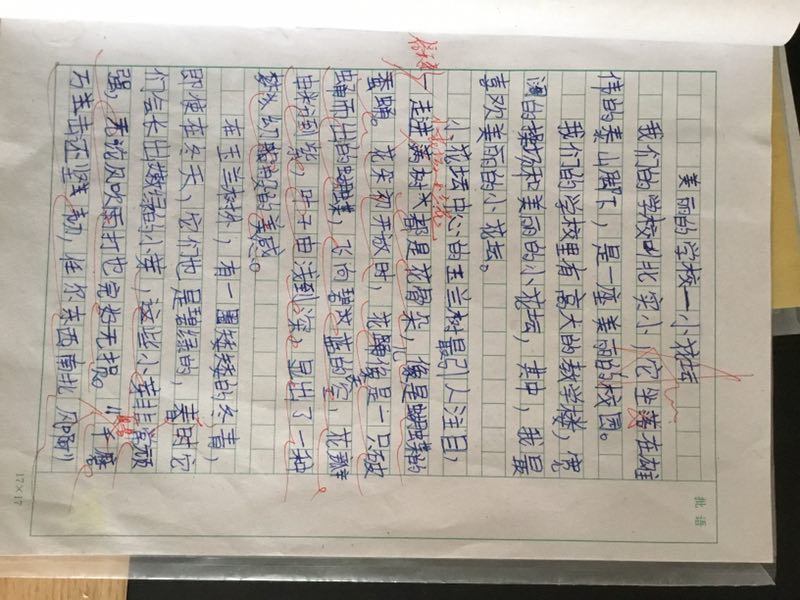 美丽的学校一小花坛
我们的学校叫北实小,它坐落在雄
伟的泰山脚下,是一座美丽的校园。
我们的学校里有高大的教学楼,宽
阔的操场和美丽的小花坛,其中,我最
喜欢美丽的小花坛。
小花坛中心的玉兰树最引人注目,
一走进 都是花骨朵儿,像是蝴蝶的
蚕蛹。花朵初开放时,花 像是一只破
蛹而出的蝴蝶,飞向碧蓝的天空,花瓣
由粉到紫,叶子由浅到深,显出了一种
梦幻般的美感。
在玉兰树外,有一团矮矮的冬青,
即使在冬天,它们也是碧绿的,春时它
们会长出嫩绿的小芽,这些小芽非常顽
强,无论风吹雨打也完好无损。“千磨
万击还坚劲,任尔东西南北风啊!
批语
17×17